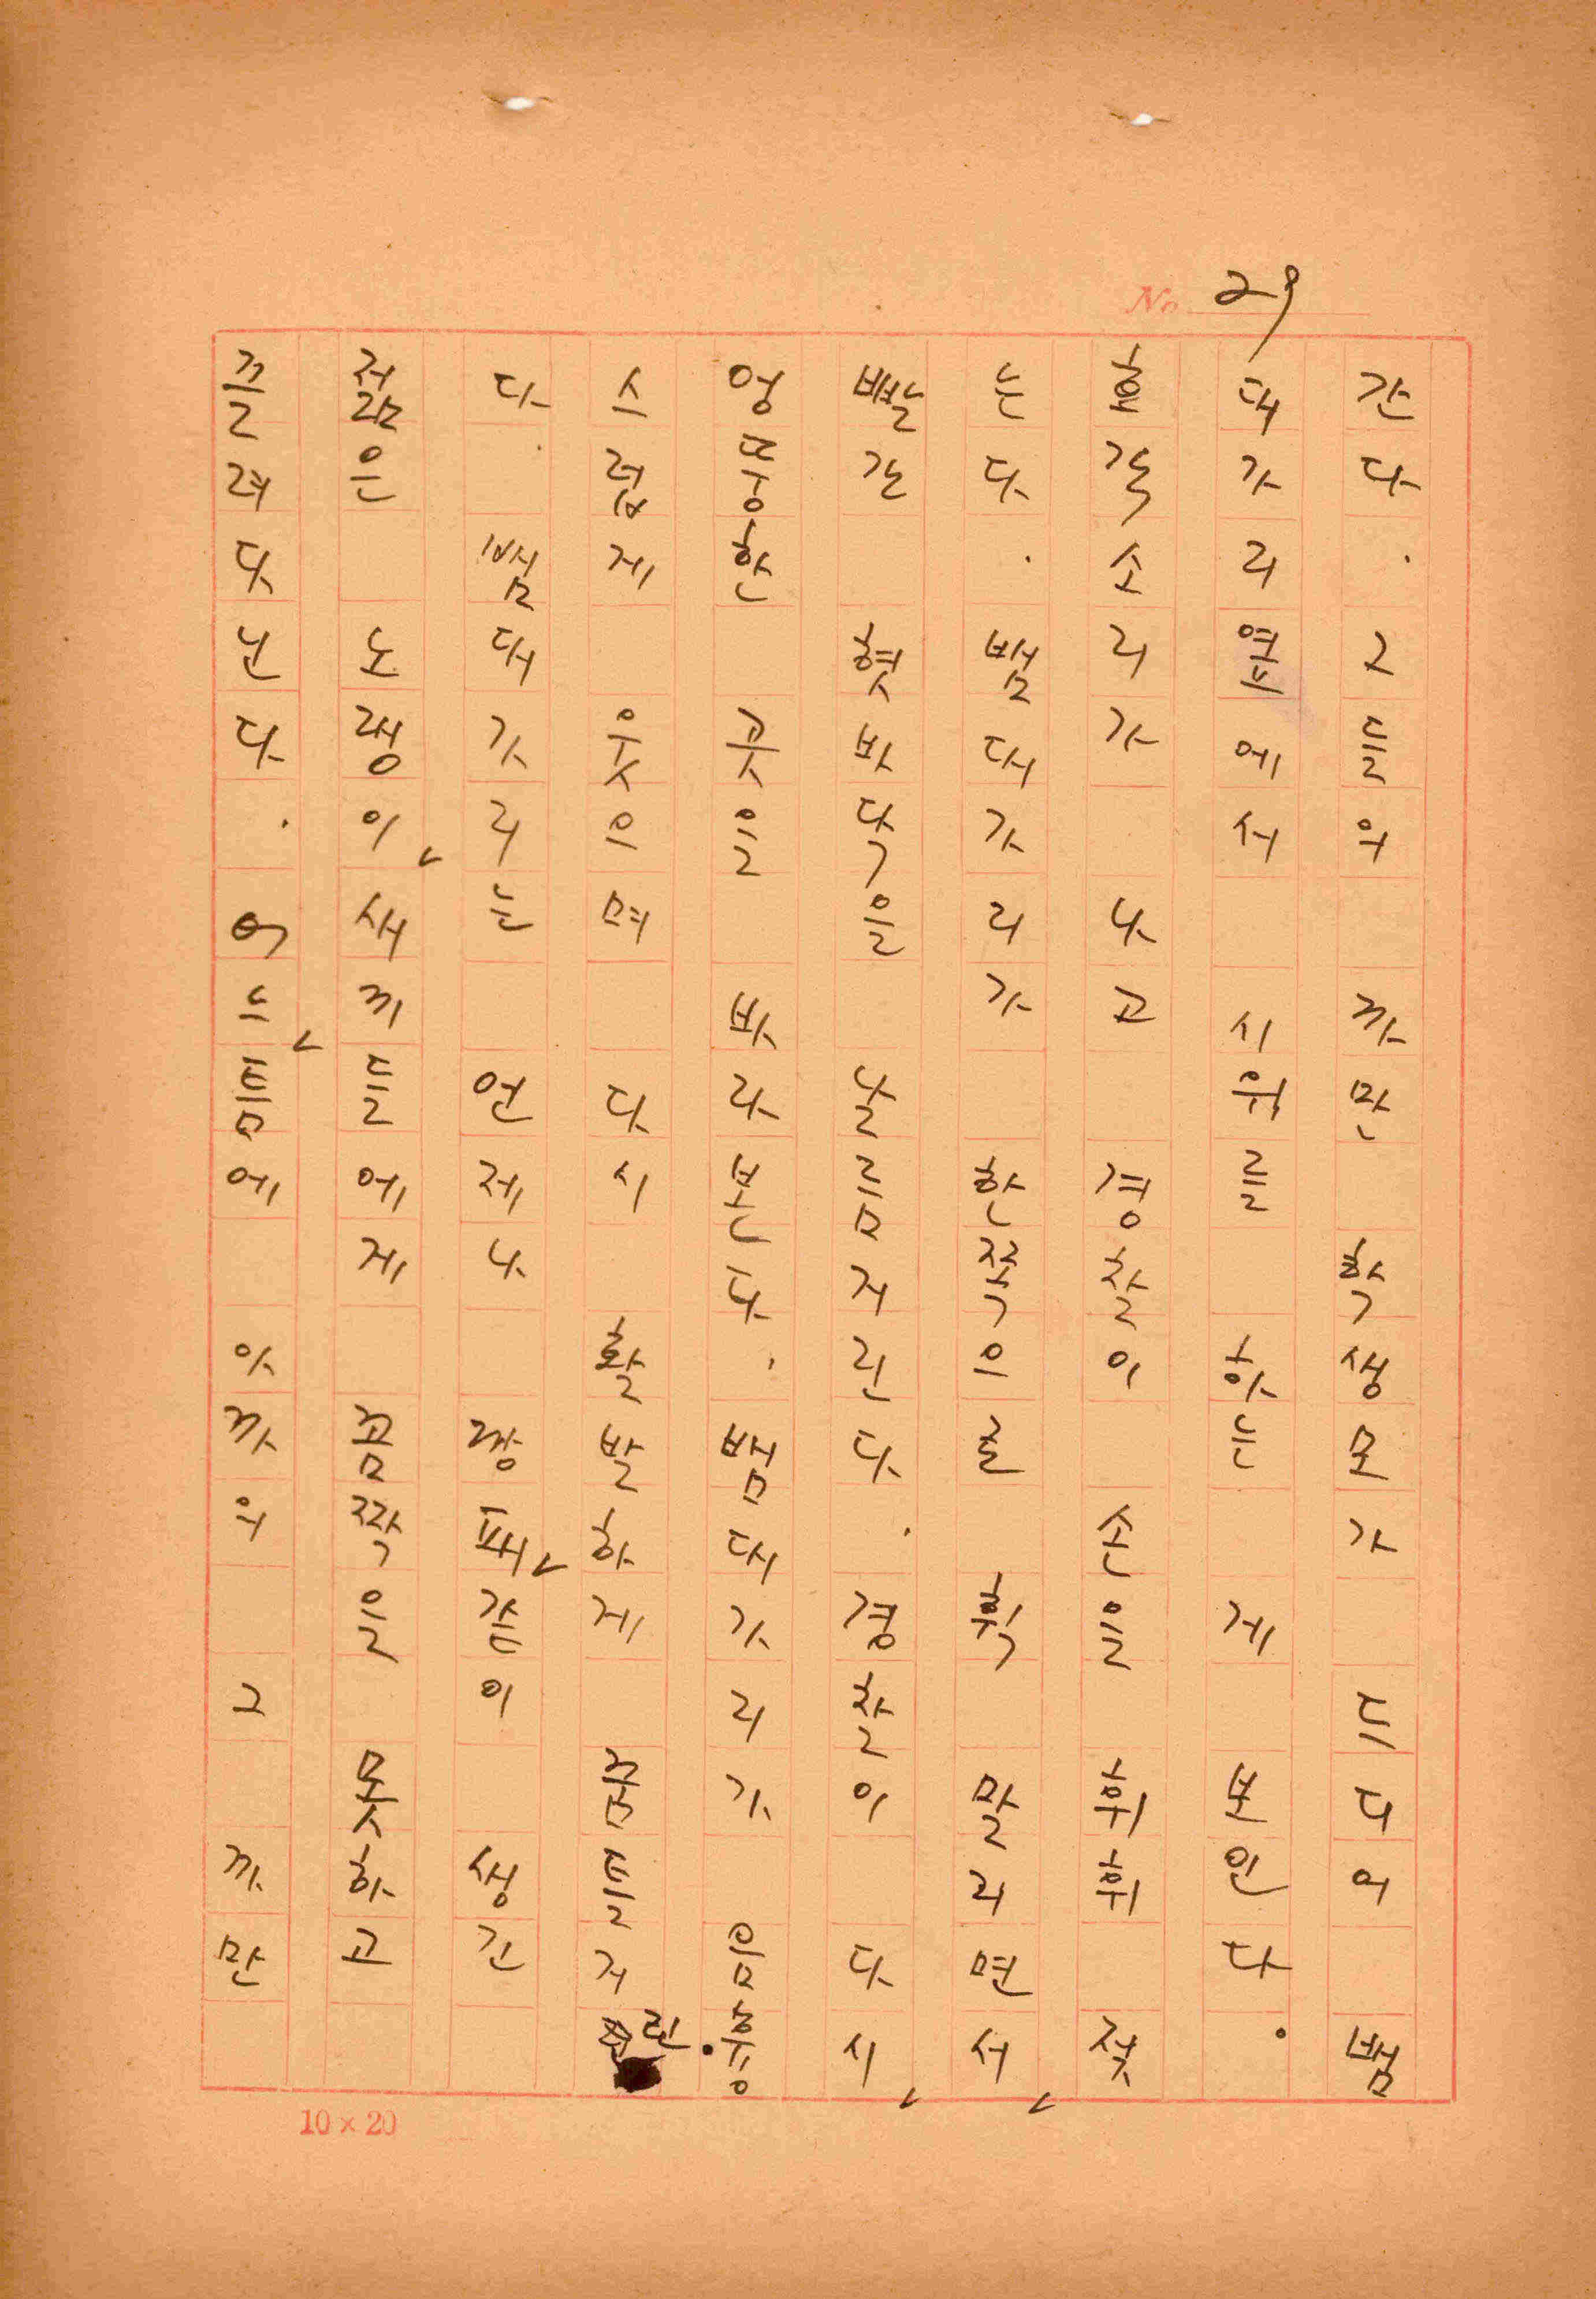 No. 29
간다. 그들의 까만 학생모가 드디어 범
대가리옆에서 시위를 하는 게 보인다.
호각소리가 나고 경찰이 손을 휘휘 젓
는다. 범대가리가 한쪽으로 휙 말리면서
빨간 혓바닥을 날름거린다. 경찰이 다시
엉뚱한 곳을 바라본다. 범대가리가 음흉
스럽게 웃으며 다시 활발하게 꿈틀거린
다. 범대가리는 언제나 깡패같이 생긴
젊은 노랭이새끼들에게 꼼짝을 못하고
끌려다닌다. 어느틈에 아까의 그 까만
10×20